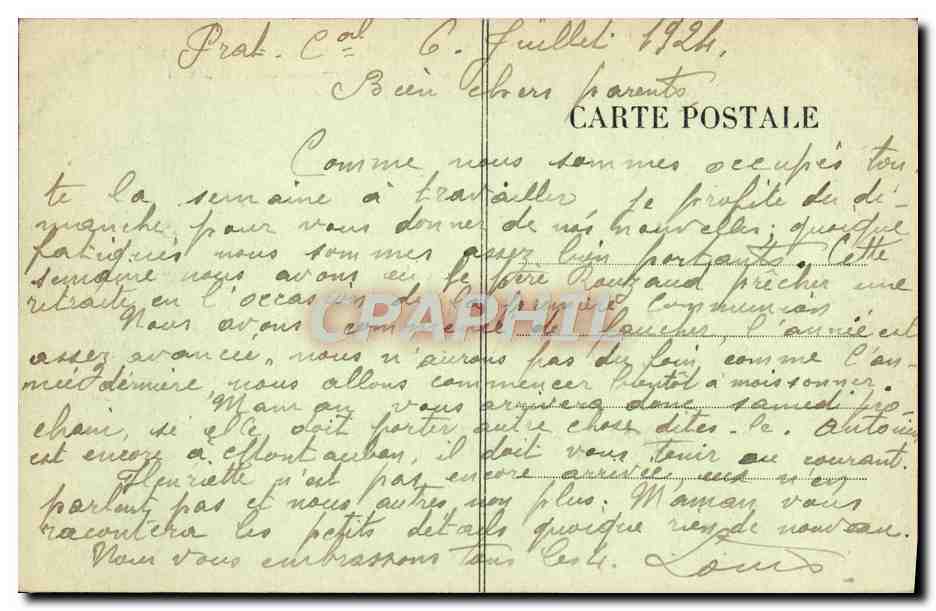 Prat-Cal 6. Juillet 1924.
Bien chers parents,
CARTE POSTALE
Comme nous sommes occupés tou-
te la semaine à travailler, je profite du di-
manche, pour vous donner de nos nouvelles; quoique
fatigués, nous sommes assez bien portants. Cette
semaine nous avons eu le père Rouzaud prêcher une
retraite en l'occasion de la première Communion
Nous avons commencé de faucher, l'année est
assez avancée, nous n'aurons pas du foin comme l'an-
née dernière, nous allons commencer bientôt à moissonner.
Maman vous arrivera donc samedi pro-
chain, si elle doit porter autre chose dites-le. Antonin
est encore à Montauban, il doit vous tenir au courant.
Henriette n'est pas encore arrivée, eux n'en
parlent pas et nous autres non plus. Maman vous
racontera les petits détails quoique rien de nouveau.
Nous vous embrassons tous les 4. Louis
CPAPHIL